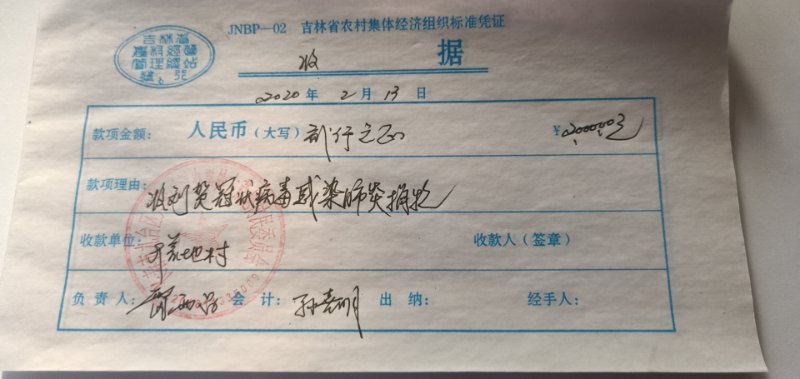 JNBP—02 吉林省农村集体经济组织标准凭证
吉林省
农村经营
管理总站
收 据
2020年 2月 13日
款项金额： 人民币（大写） 贰仟元正 ¥2000.00元
款项理由： 收到 冠状病毒感染肺炎捐款
收款单位： 开荒地村 收款人（签章）
负责人： 会计： 孙 明 出纳： 经手人：